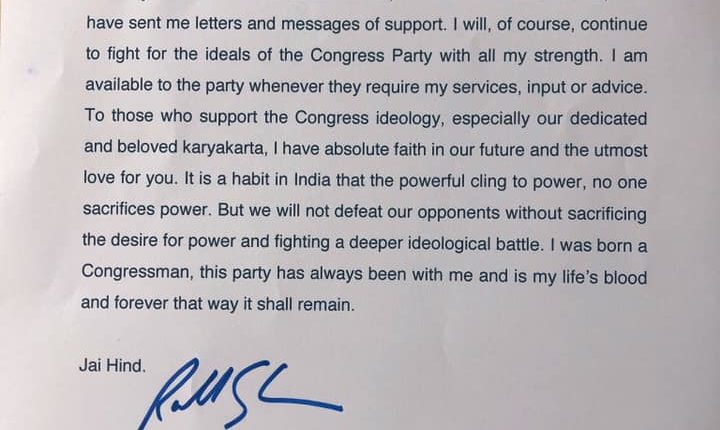 have sent me letters and messages of support. I will, of course, continue
to fight for the ideals of the Congress Party with all my strength. I am
available to the party whenever they require my services, input or advice.
To those who support the Congress ideology, especially our dedicated
and beloved karyakarta, I have absolute faith in our future and the utmost
love for you. It is a habit in India that the powerful cling to power, no one
sacrifices power. But we will not defeat our opponents without sacrificing
the desire for power and fighting a deeper ideological battle. I was born a
Congressman, this party has always been with me and is my life's blood
and forever that way it shall remain.
Jai Hind.